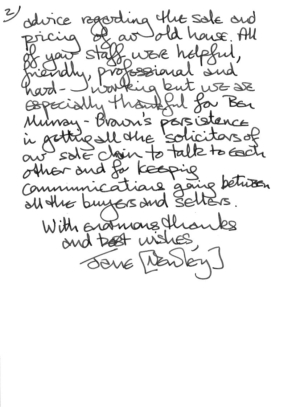 2/
advice regarding the sale and
pricing of our old house. All
of your staff were helpful,
friendly, professional and
hard-working but we are
especially thankful for Ben
Murray-Brown's persistence
in getting all the solicitors of
our sale chain to talk to each
other and for keeping
communications going between
all the buyers and sellers.
With enormous thanks
and best wishes,
Jane